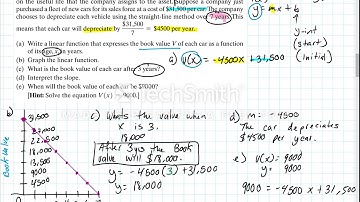 on the useful life that the company assigns to the asset. Suppose a company just
purchased a fleet of new cars for its sales force at a cost of $31,500 per car. The company
chooses to depreciate each vehicle using the straight-line method over 7 years. This
means that each car will depreciate by $31,500/7 = $4500 per year.
(a) Write a linear function that expresses the book value V of each car as a function
of its age, x, in years.
(b) Graph the linear function.
(c) What is the book value of each car after 3 years?
(d) Interpret the slope.
(e) When will the book value of each car be $9000?
[Hint: Solve the equation V(x) = 9000.]
y = mx + b
y-int
(start)
(initial)
a) V(x) = -4500x + 31,500
b)
31,500
27,000
22,500
18,000
13,500
9000
4500
Book Value
c) Whats the value when
x is 3.
18,000
After 3yrs the Book
value will $18,000.
y = -4500(3) + 31,500
y = 18,000
d) m = -4500
The car depreciates
$4500 per year.
e) V(x) = 9000
y = 9000
9000 = -4500x + 31,500